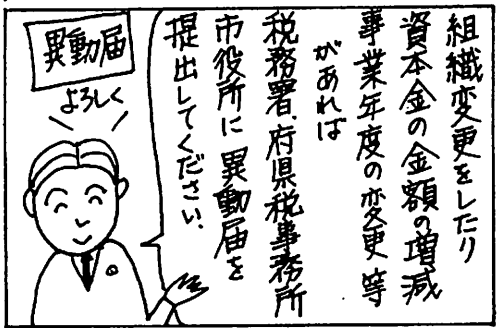 組織変更をしたり
資本金の金額の増減
事業年度の変更等
があれば
税務署、府県税事務所
市役所に異動届を
提出してください、
異動届
よろしく